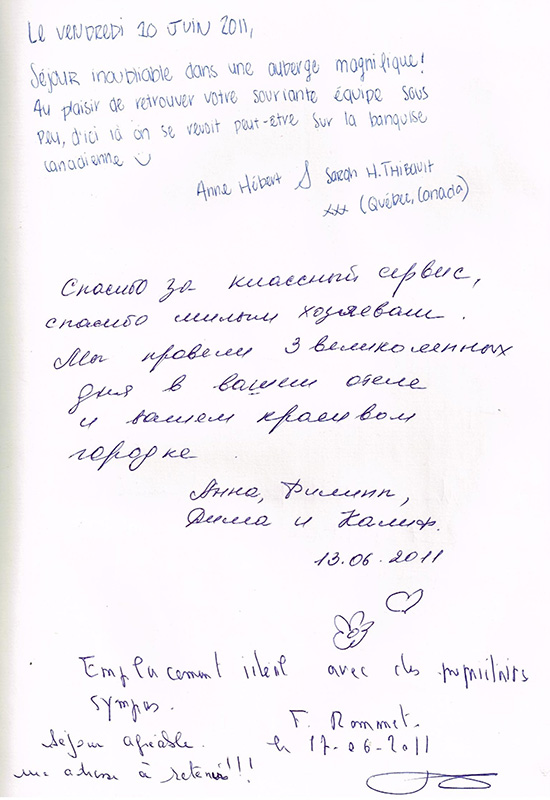 Le vendredi 10 Juin 2011,
Séjour inoubliable dans une auberge magnifique!
Au plaisir de retrouver votre souriante équipe sous
peu, d'ici là on se revoit peut-être sur la banquise
canadienne
Anne Hébert & Sarah H. Thibault
xxx (Québec, Canada)
Спасибо за классный сервис,
спасибо милым хозяевам.
Мы провели 3 великолепных
дня в вашем отеле
и вашем красивом
городке
Анна, Филипп,
Дима и Калиф.
13.06.2011
Emplacement idéal avec des propriétaires
sympas.
F. Rommet.
Séjour agréable. le 17-06-2011
une adresse à retenir!!!